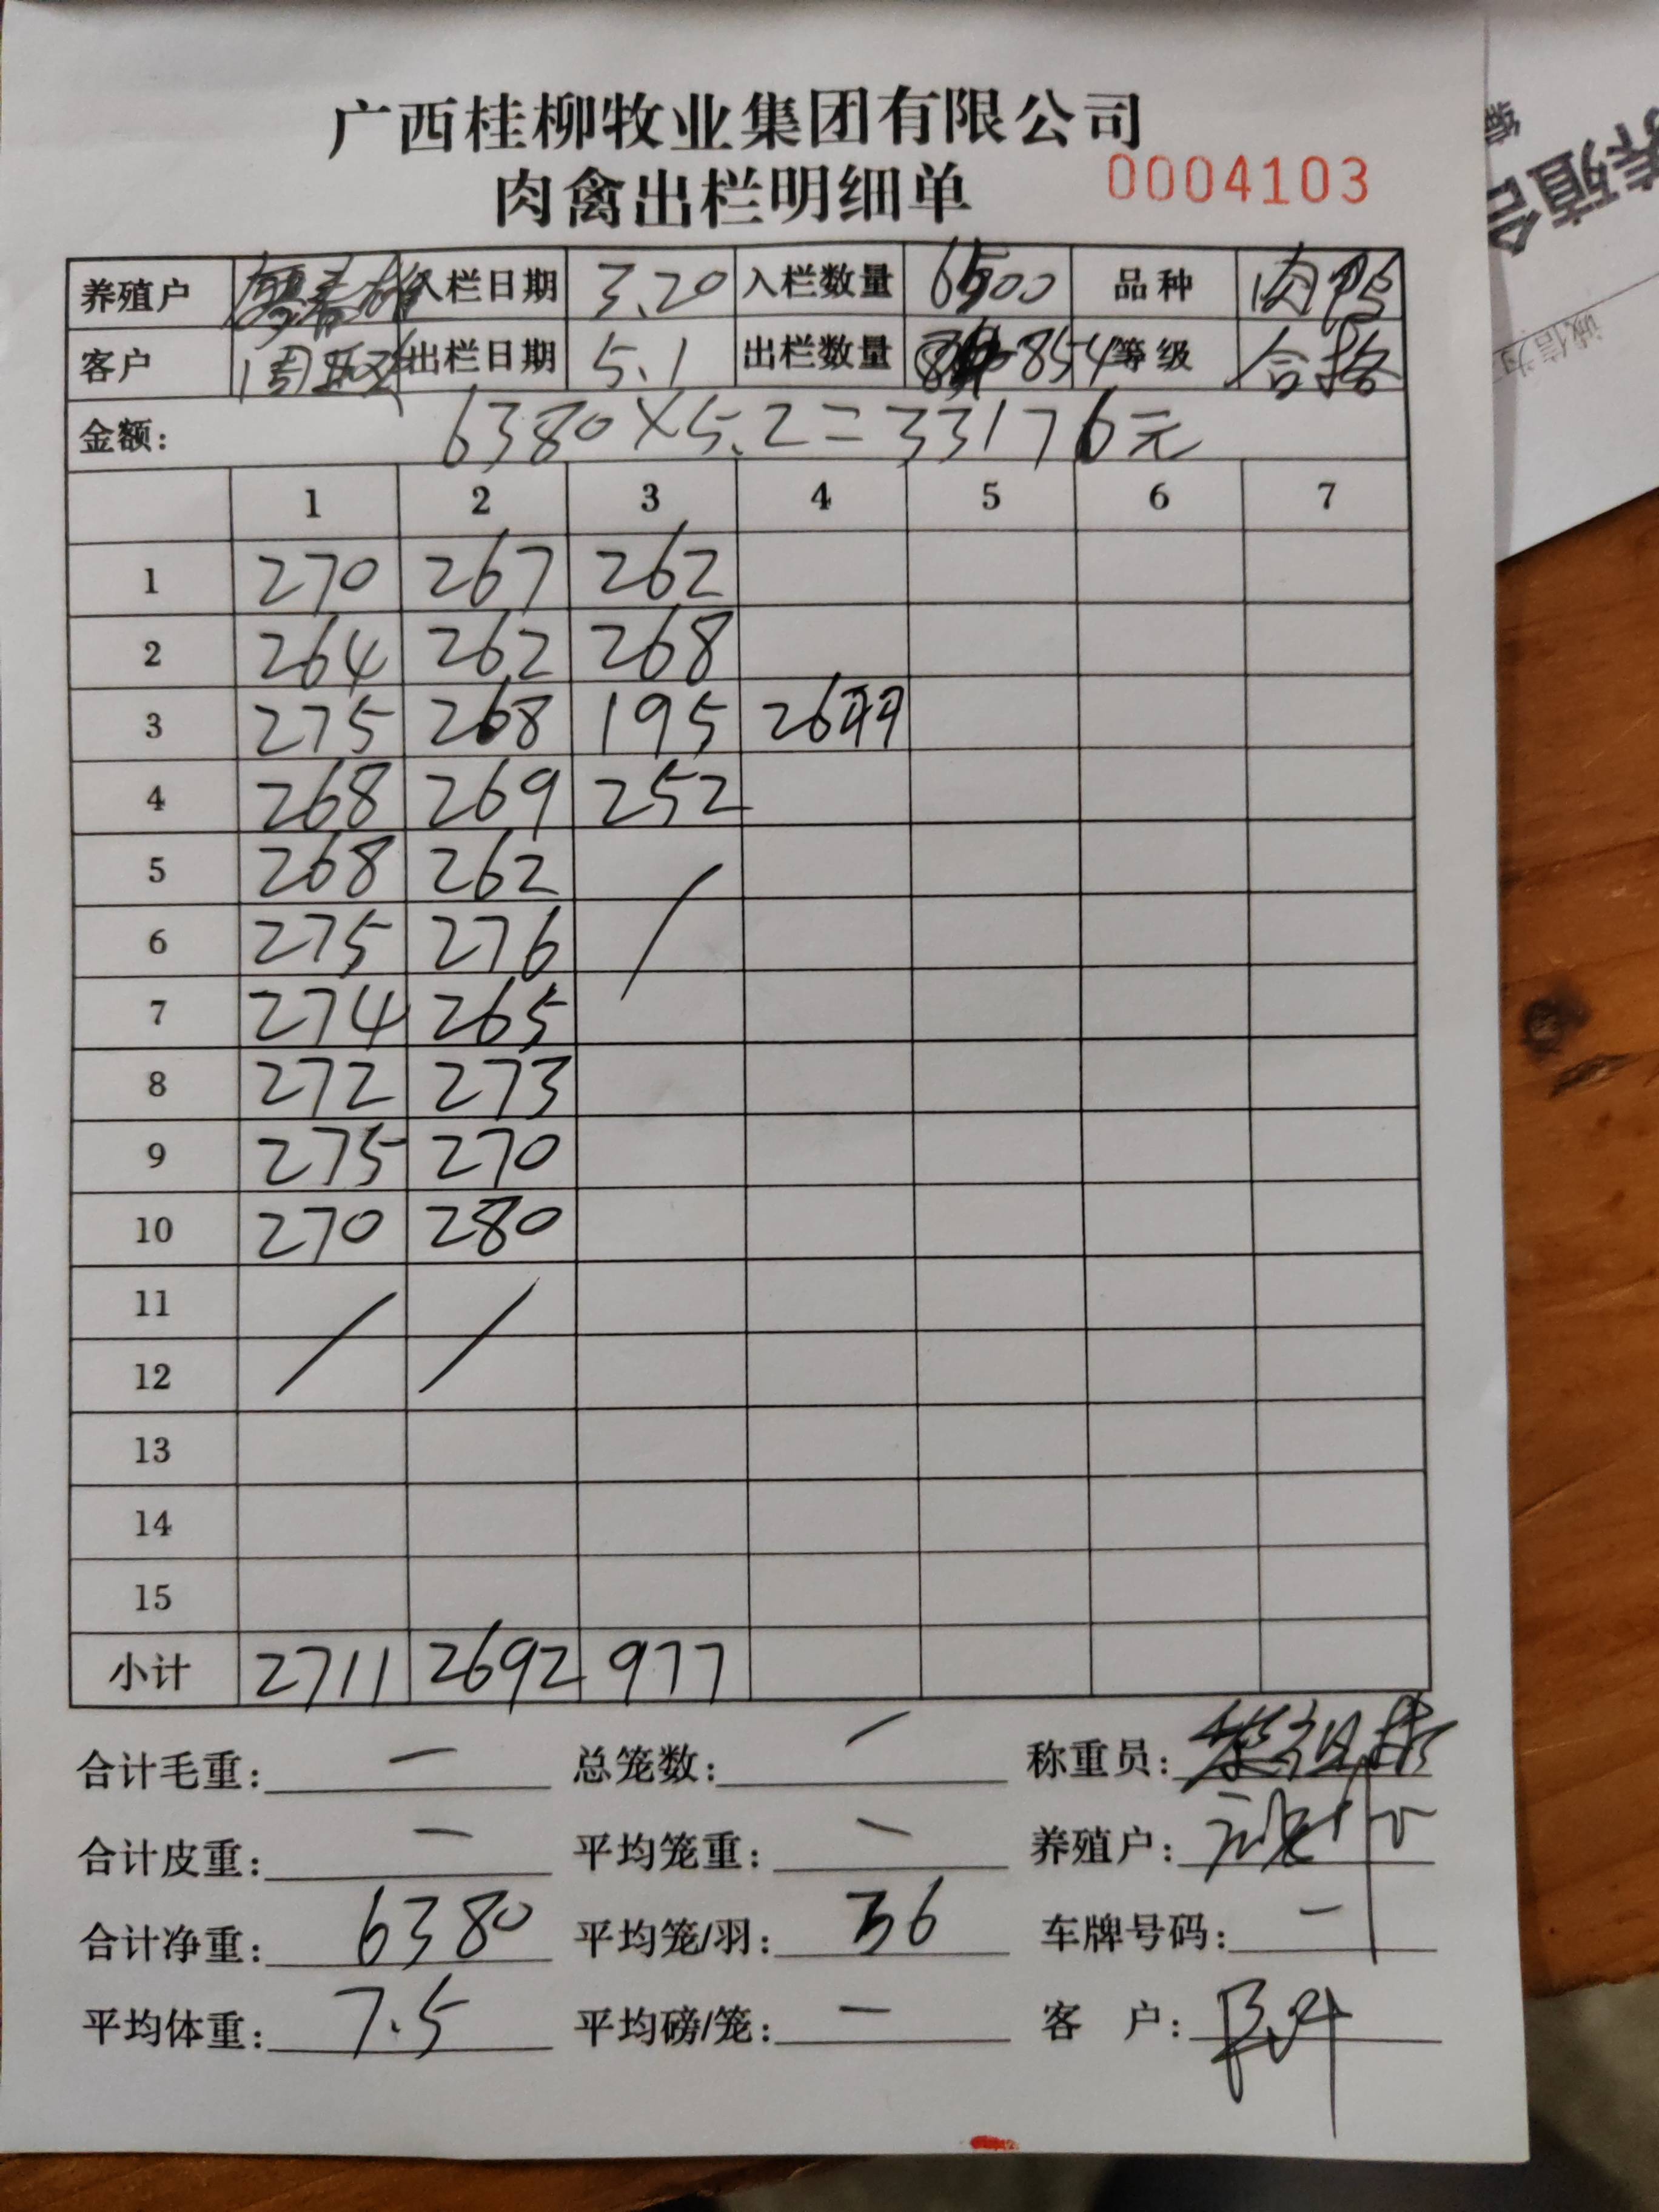 广西桂柳牧业集团有限公司
肉禽出栏明细单 0004103
养殖户 入栏日期 3.20 入栏数量 6500 品种 肉鸭
客户 出栏日期 5.1 出栏数量 854 等级 合格
金额: 6380×5.2=33176元
1 2 3 4 5 6 7
1 270 267 262
2 264 262 268
3 275 268 195 26羽
4 268 269 252
5 268 262
6 275 276
7 274 265
8 272 273
9 275 270
10 270 280
11
12
13
14
15
小计 2711 2692 977
合计毛重: 一 总笼数: 一 称重员:
合计皮重: 一 平均笼重: 一 养殖户:
合计净重: 6380 平均笼/羽: 36 车牌号码: 一
平均体重: 7.5 平均磅/笼: 一 客 户:
诚信为